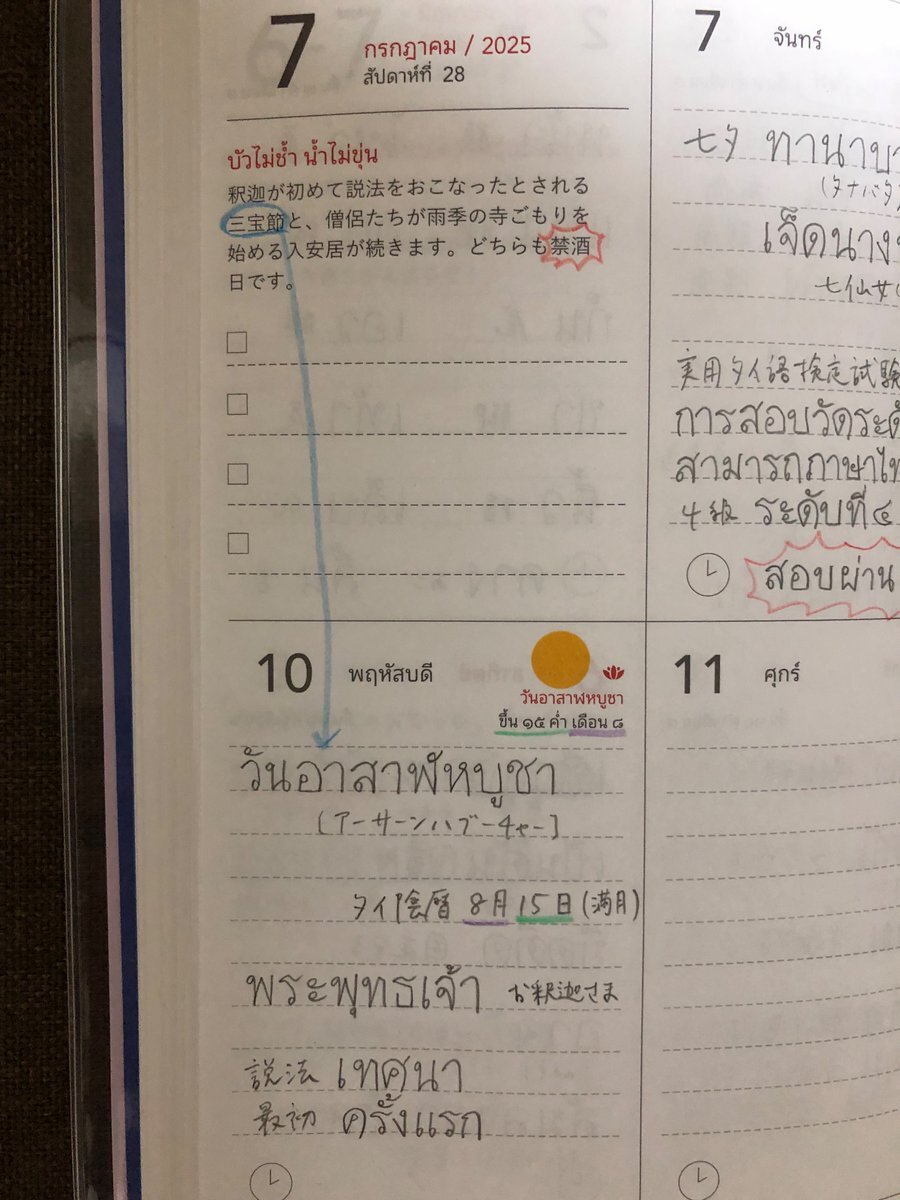 7
กรกฎาคม / 2025
สัปดาห์ที่ 28
บัวไม่ช้ำ น้ำไม่ขุ่น
釈迦が初めて説法をおこなったとされる
三宝節と、僧侶たちが雨季の寺ごもりを
始める入安居が続きます。どちらも禁酒
日です。
7 จันทร์
七夕 ทานาบา
(タナバタ
เจ็ดนาง
七仙女(
実用タイ語検定試験
การสอบวัดระดั
สามารถภาษาไท
4級 ระดับที่ ๔
สอบผ่าน
10 พฤหัสบดี
วันอาสาฬหบูชา
ขึ้น ๑๕ ค่ำ เดือน ๘
วันอาสาฬหบูชา
[アーサーンハブーチャー]
タイ陰暦 8月 15日 (満月)
พระพุทธเจ้า お釈迦さま
説法 เทศนา
最初 ครั้งแรก
11 ศุกร์